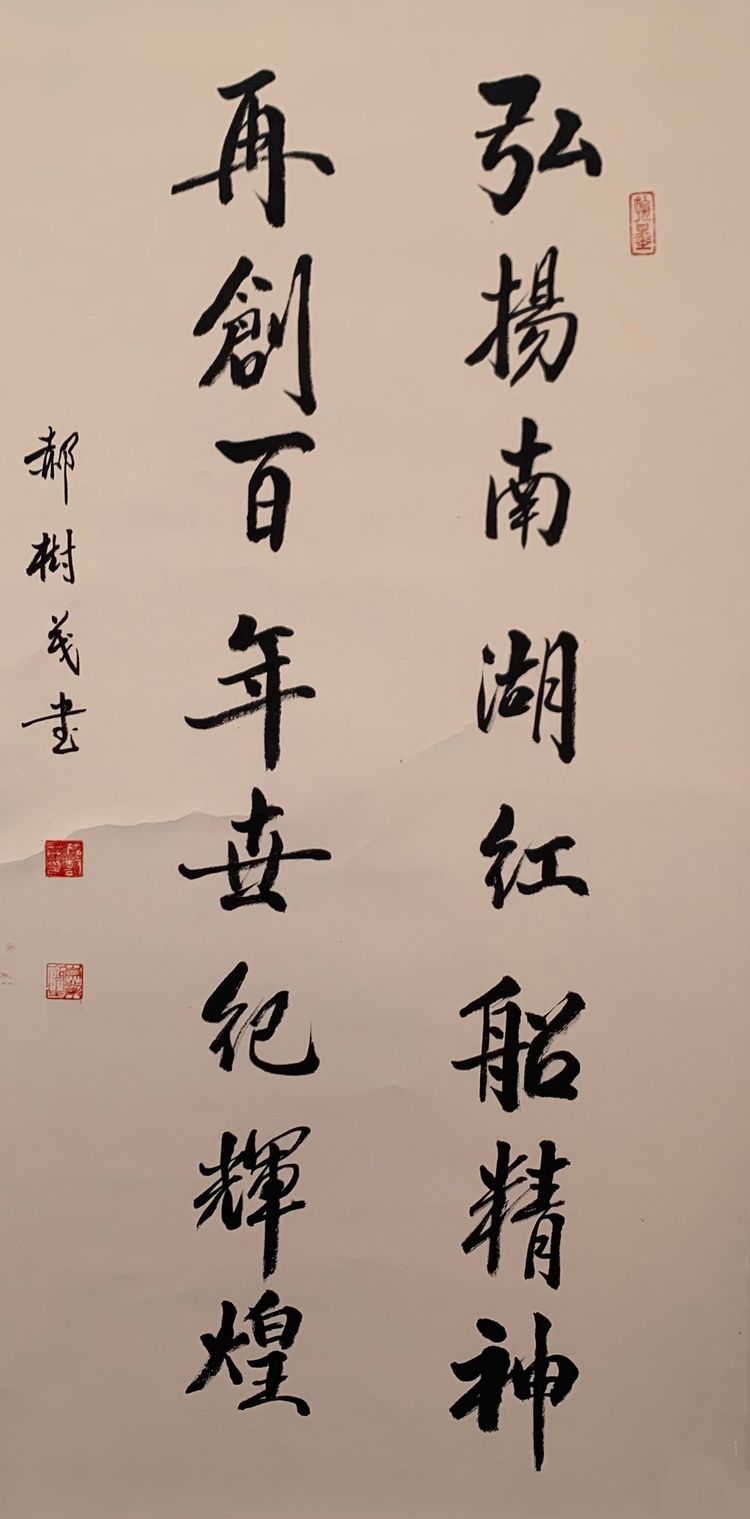 弘揚南湖红船精神
再創百年世纪輝煌
郝樹茂書